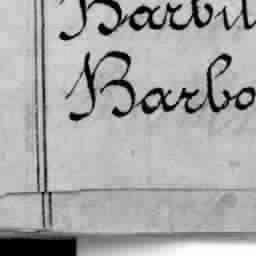 Barbil
Barbo